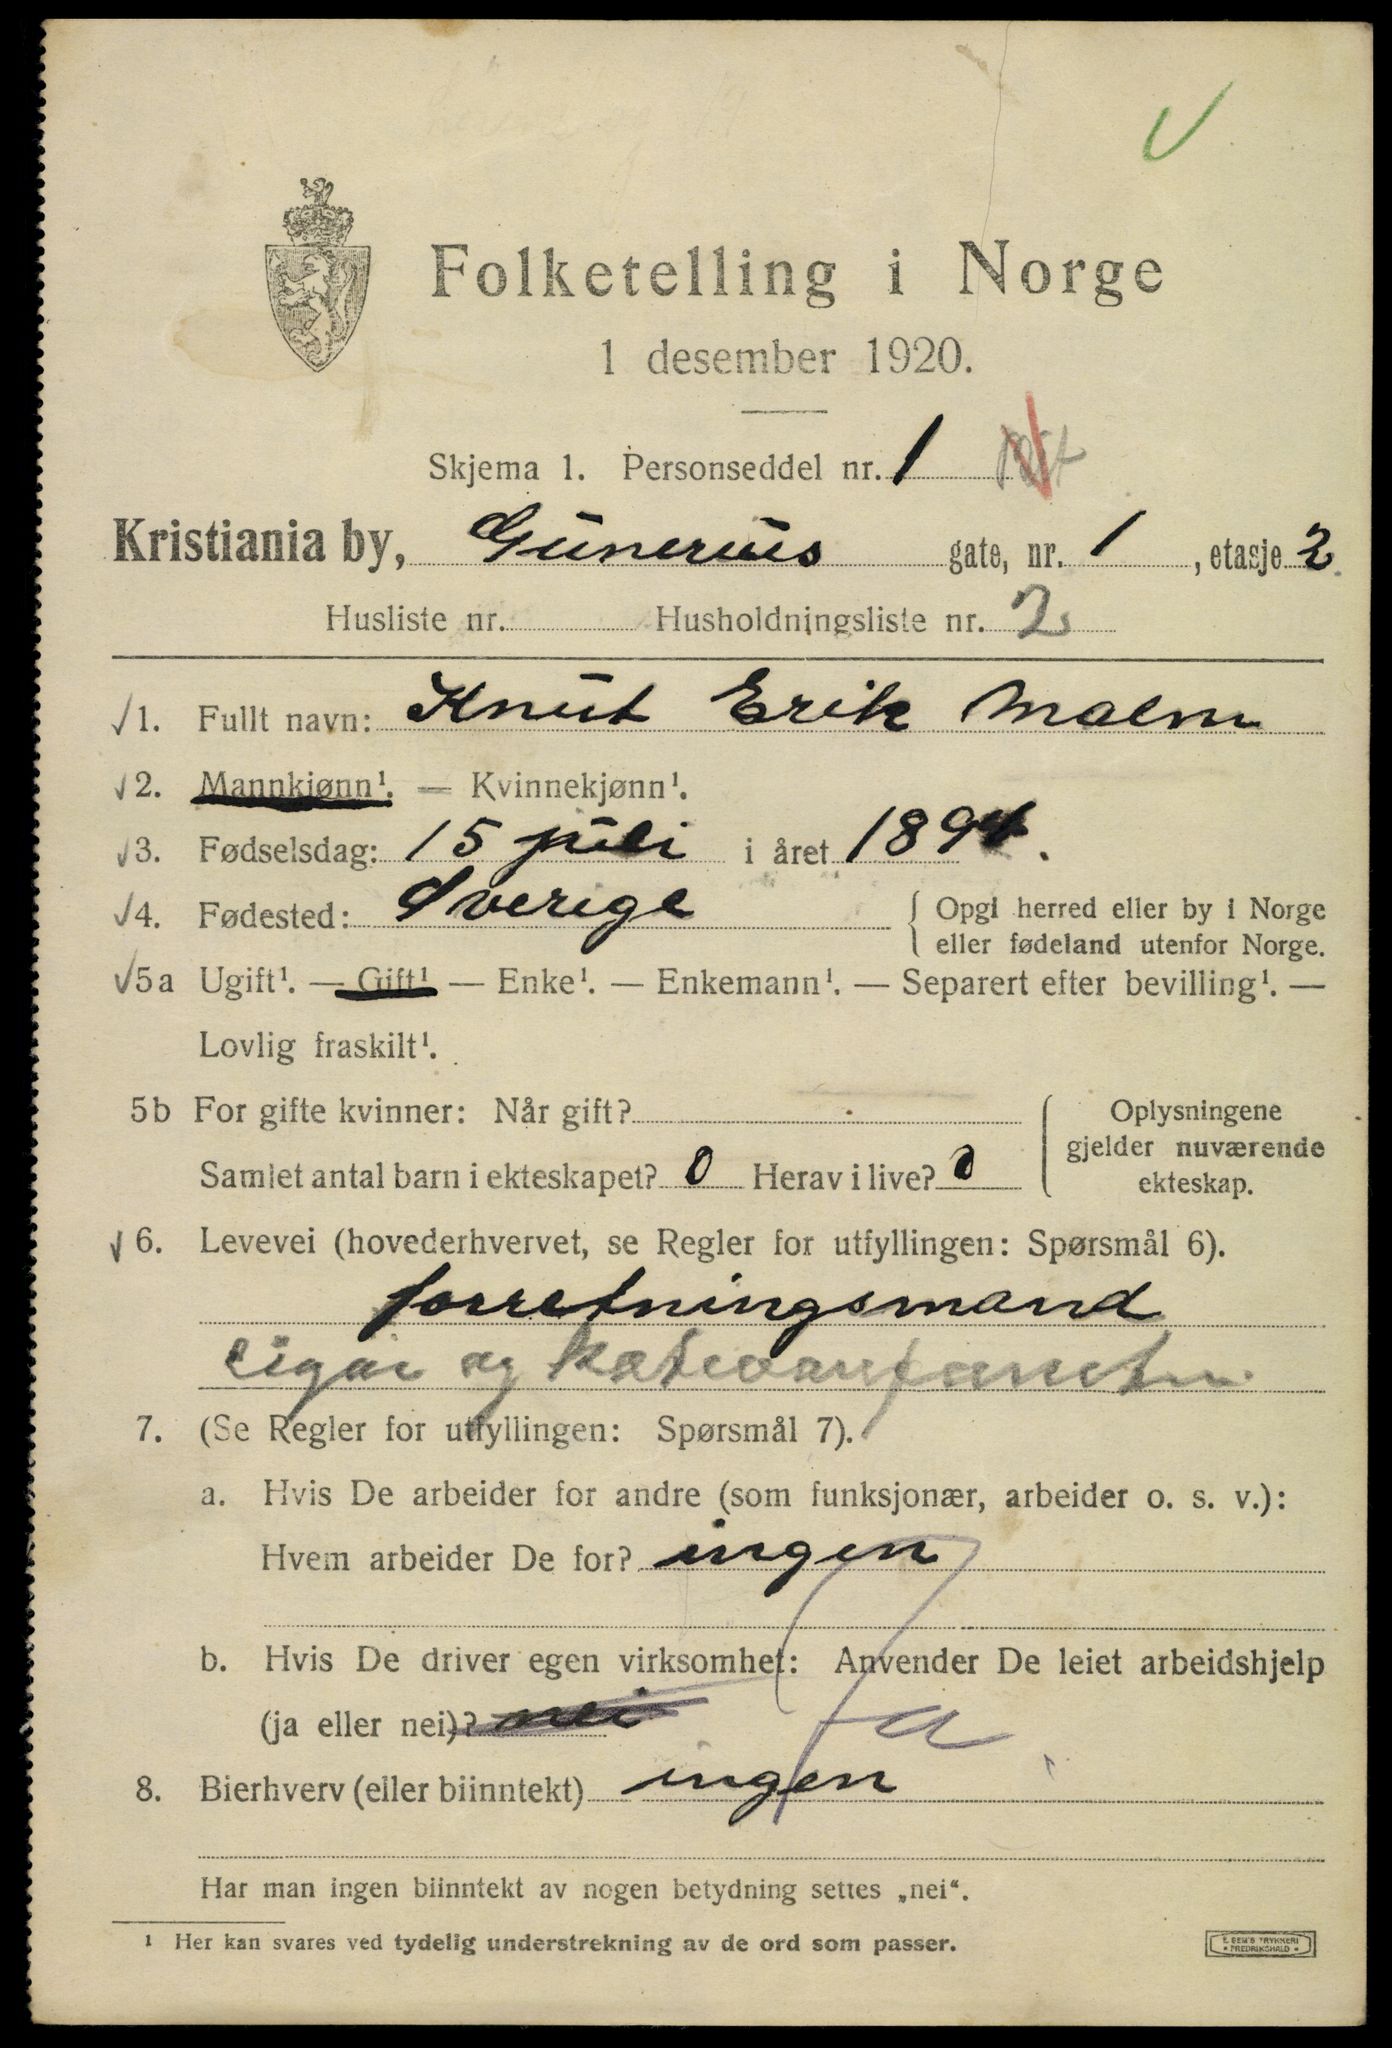 Folketelling i Norge
1 desember 1920.
Skjema 1. Personseddel nr. 1
Kristiania by, Günerüs gate, nr. 1, etasje 2
Husliste nr. Husholdningsliste nr. 2
1. Fullt navn: Knut Erik Malm
2. Mannkjønn¹. — Kvinnekjønn¹.
3. Fødselsdag: 15 juli i året 1894.
4. Fødested: Sverige { Opgi herred eller by i Norge
eller fødeland utenfor Norge.
5a Ugift¹. — Gift¹ — Enke¹. — Enkemann¹. — Separert efter bevilling¹. —
Lovlig fraskilt¹.
5b For gifte kvinner: Når gift?
Samlet antal barn i ekteskapet? 0 Herav i live? 0
Oplysningene
gjelder nuværende
ekteskap.
6. Levevei (hovederhvervet, se Regler for utfyllingen: Spørsmål 6).
forretningsmand
cigar og
7. (Se Regler for utfyllingen: Spørsmål 7).
a. Hvis De arbeider for andre (som funksjonær, arbeider o. s. v.):
Hvem arbeider De for? ingen
b. Hvis De driver egen virksomhet: Anvender De leiet arbeidshjelp
(ja eller nei)? nei Ja
8. Bierhverv (eller biinntekt) ingen
Har man ingen biinntekt av nogen betydning settes „nei“.
¹ Her kan svares ved tydelig understrekning av de ord som passer.
E. SEM'S TRYKKERI
• FREDRIKSHALD •